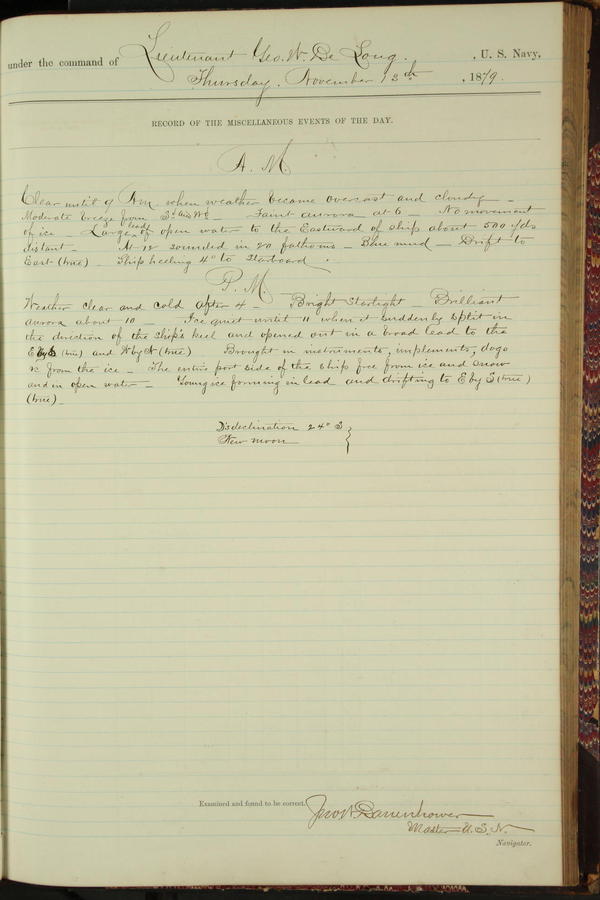 under the command of Lieutenant Geo. W. De Long. , U. S. Navy,
Thursday, November 13th , 1879.
RECORD OF THE MISCELLANEOUS EVENTS OF THE DAY.
A. M.
Clear until 9 A.M. when weather became overcast and cloudy –
Moderate breeze from – Faint aurora at 6 – No movement
of ice – Large lead of open water to the Eastward of ship about 500 yds
distant – At 12 sounded in 20 fathoms – Blue mud – Drift to
East (true) – Ship heeling 4° to Starboard.
P. M.
Weather clear and cold after 4 – Bright Starlight – Brilliant
aurora about 10 – Ice quiet until 11 when it suddenly split in
the direction of the ship's keel and opened out in a broad lead to the
(true) and W by N (true) Brought in instruments, implements, dogs
&c from the ice – The entire port side of the ship free from ice and snow
and in open water – Young ice forming in lead and drifting to E by S (true)
(true) –
D's declination 24° S
New moon
Examined and found to be correct.
Jno W Danenhower
Master U.S.N.
Navigator.